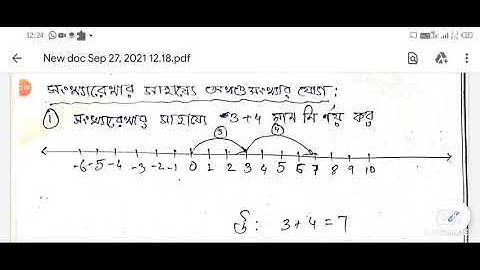 12:24
New doc Sep 27, 2021 12.18.pdf
সংখ্যারেখার সাহায্যে অখণ্ডসংখ্যার যোগ :
① সংখ্যারেখার সাহায্যে 3+4 মান নির্ণয় কর
③ ④
-6 -5 -4 -3 -2 -1 0 1 2 3 4 5 6 7 8 9 10
উঃ: 3+4=7